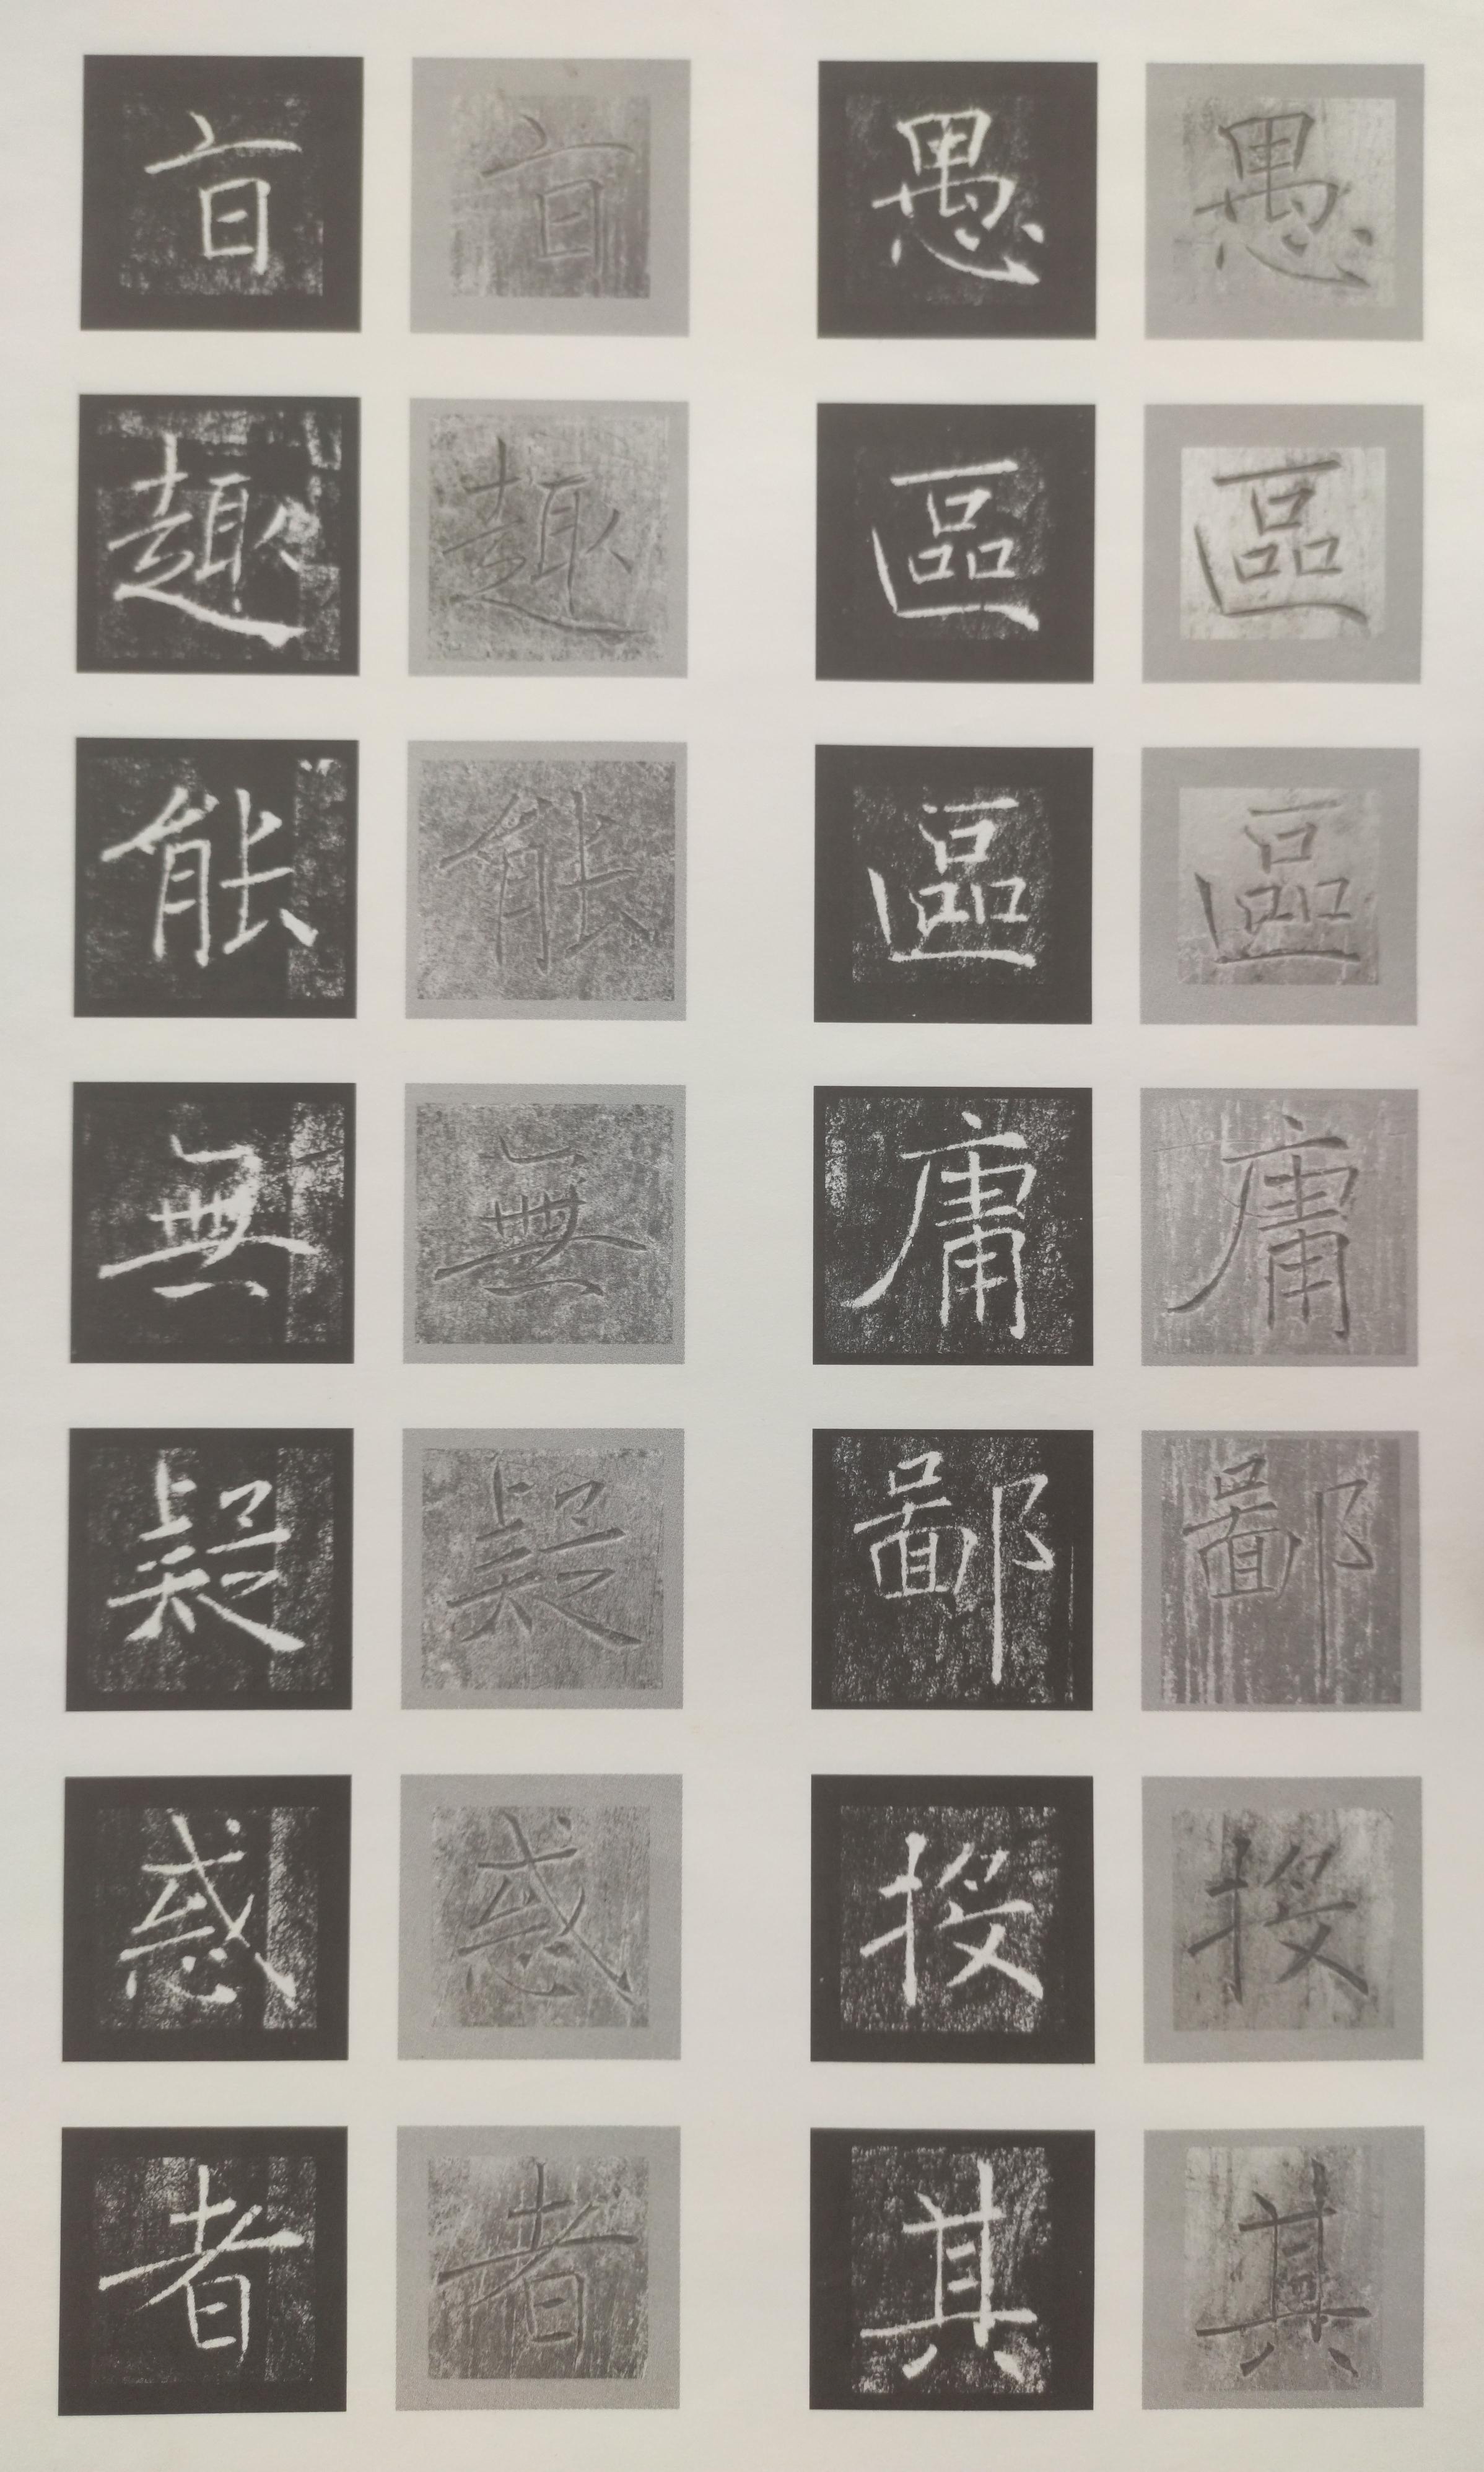 愚區區庸鄙投其
愚區區庸鄙投其
旨趣能無疑惑者
旨趣能無疑惑者